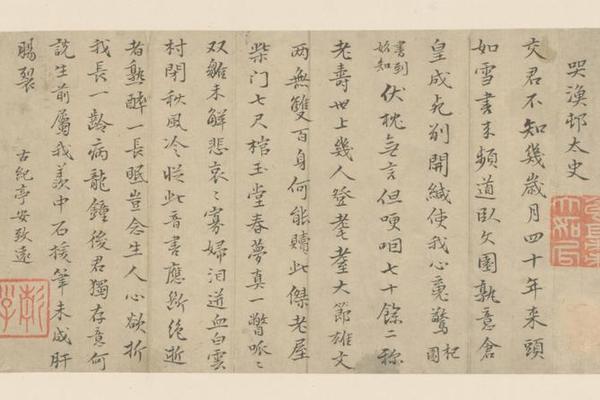 哭漁邨太史
交君不知幾歲月四十年來頭
如雪書來頻道臥欠園孰意倉
皇成死別開緘使我心魂驚杞園
書到始知伏枕無言但哽咽七十餘二稱
老壽世上幾人登耄耋大節雄文
两無雙百身何能贖此傑老屋
柴門七尺棺玉堂春夢真一瞥呱〻
双雛未解悲哀〻寡婦泪迸血白雲
村閉秋風冷從此音書應斷絶逝
者熟醉一長眠豈念生人心欲折
我長一齡病龍鍾後君獨存意何
說生前屬我羨中石援筆未成肝
腸裂
古紀亭安致遠